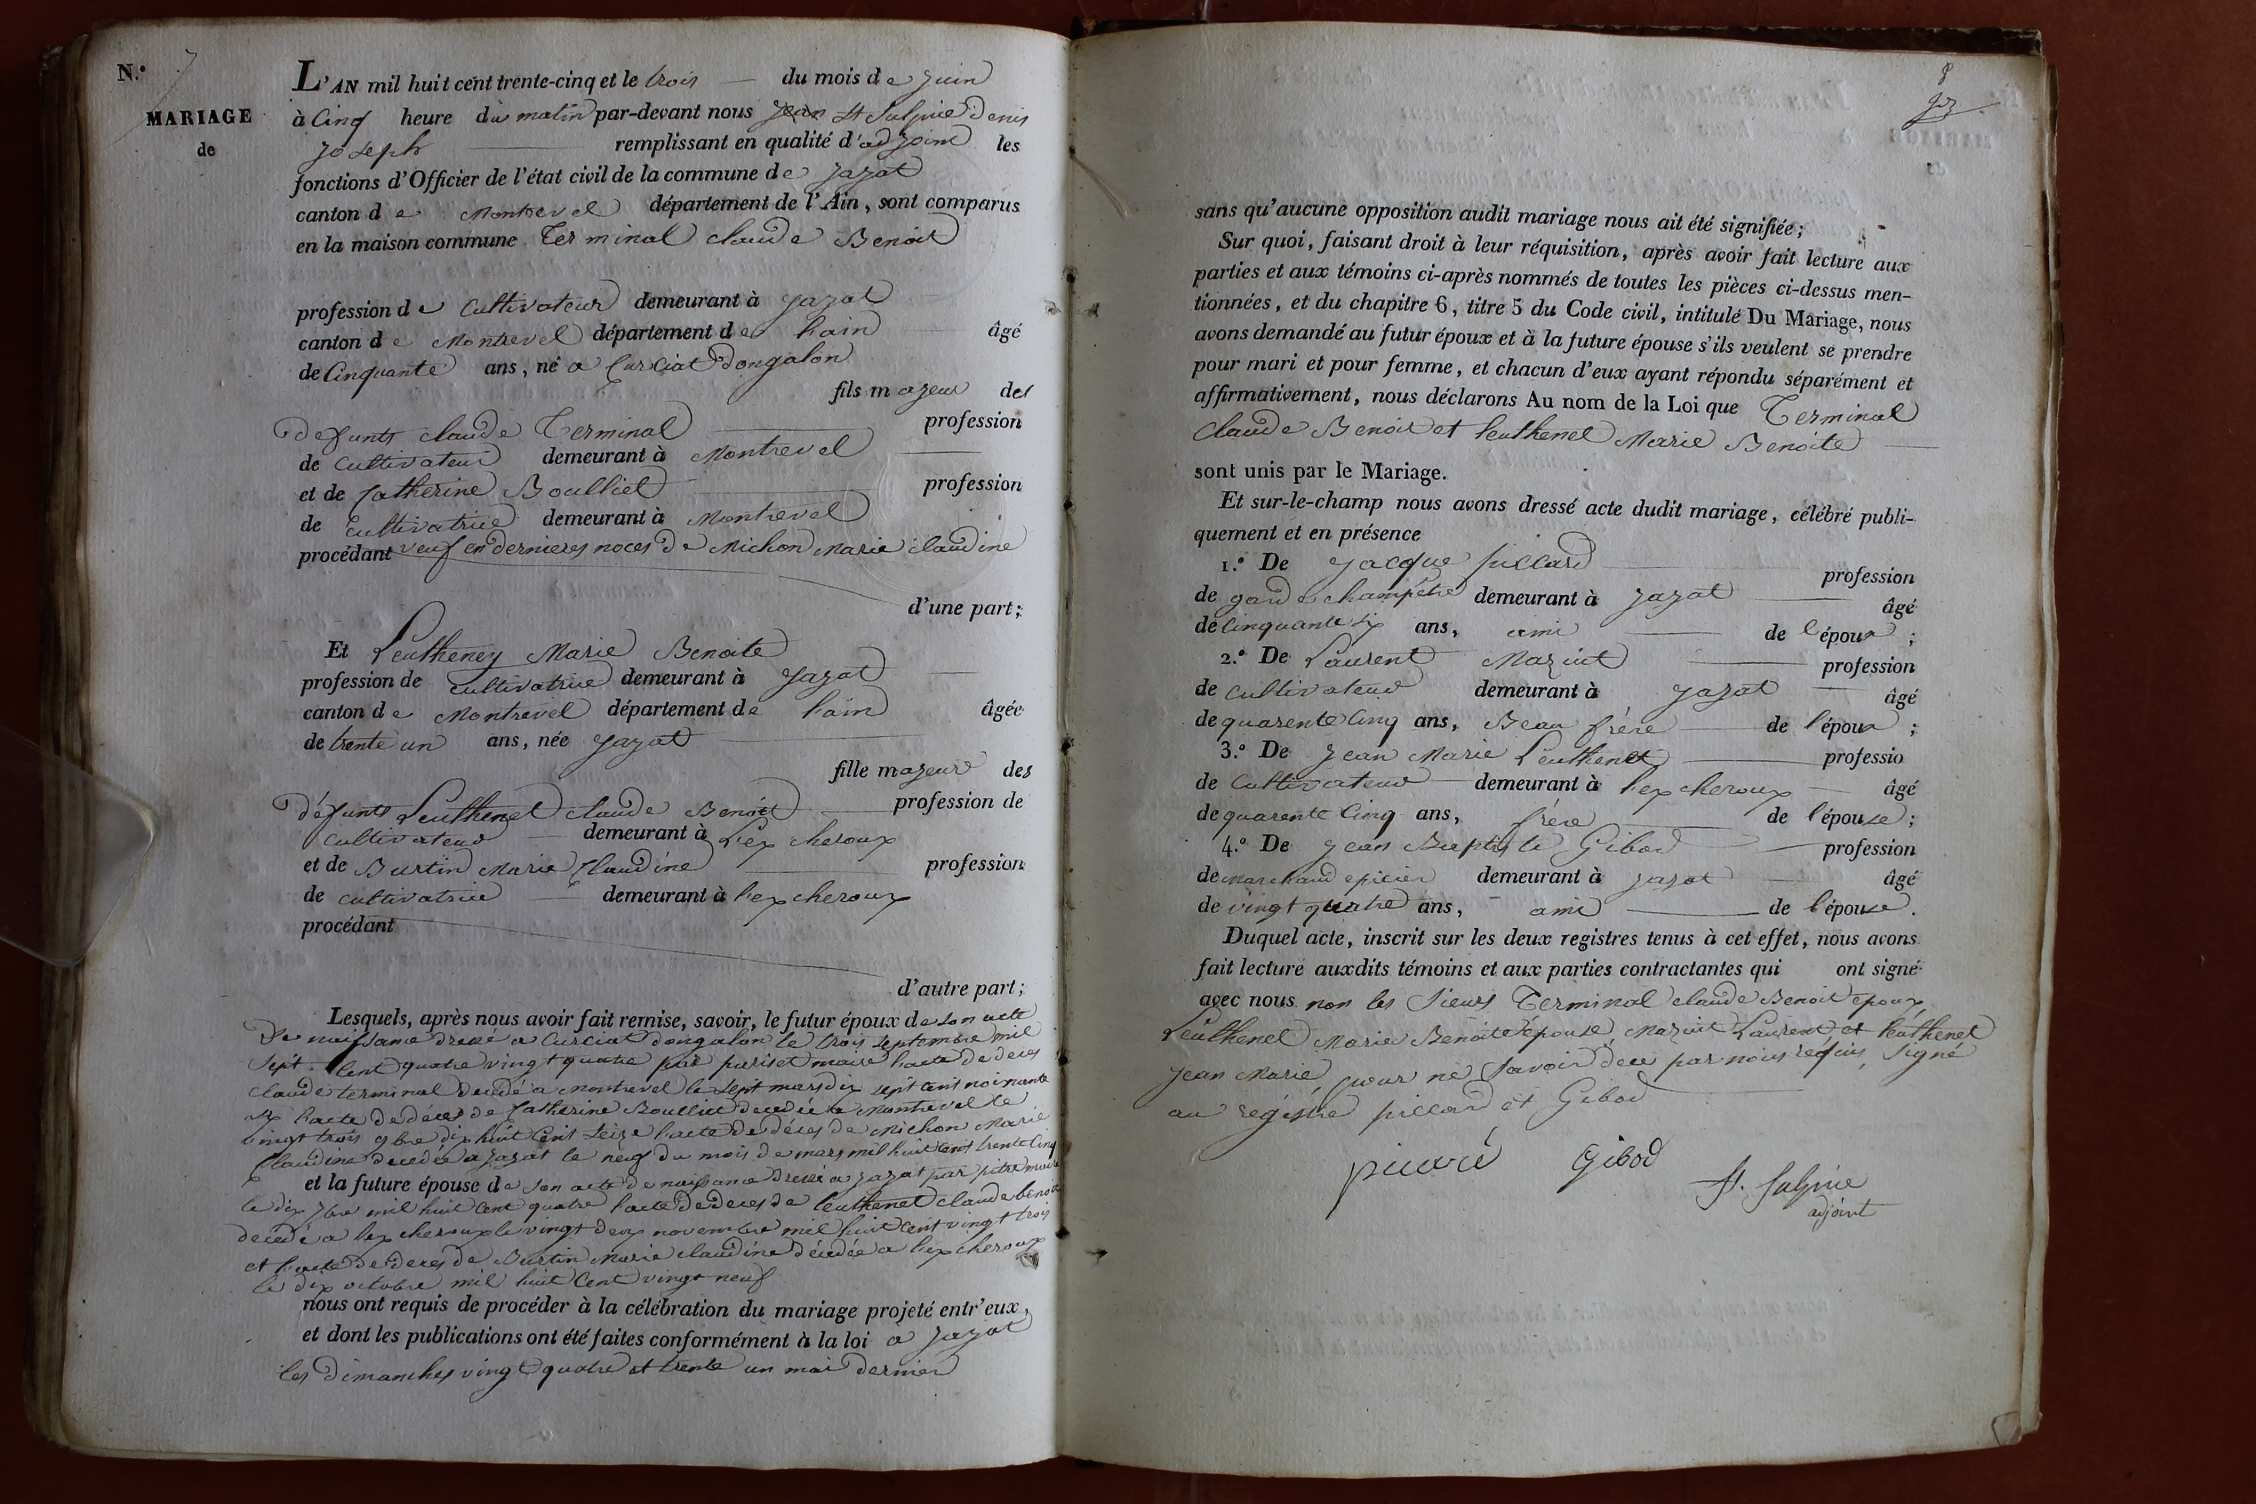 N.° 7
MARIAGE
de
L'AN mil huit cent trente-cinq et le trois du mois de juin
à Cinq heure du matin par-devant nous St Sulpice denis
joseph remplissant en qualité d'adjoint les
fonctions d'Officier de l'état civil de la commune de jayat
canton de Montrevel département de l'Ain, sont comparus
en la maison commune Terminal claude Benoit
profession de cultivateur demeurant à jayat
canton de Montrevel département de hain âgé
de Cinquante ans, né a Curciat dongalon
fils majeur des
defunts claude Terminal profession
de cultivateur demeurant à Montrevel
et de Catherine Boulliet profession
de cultivatrice demeurant à Montrevel
procédant veuf en dernieres noces de Michon Marie claudine
d'une part;
Et Leutheney Marie Benoite
profession de cultivatrice demeurant à jayat
canton de Montrevel département de hain âgée
de trente un ans, née jayat
fille majeure des
défunts Leuthenet claude Benoit profession de
cultivateur demeurant à L'ex cheroux
et de Burtin Marie Claudine profession
de cultivatrice demeurant à l'ex cheroux
procédant
d'autre part;
Lesquels, après nous avoir fait remise, savoir, le futur époux de son acte
De naissance dressé a Curciat dongalon le trois septembre mil
sept cent quatre vingt quatre par pariset maire l'acte de deces
claude terminal decedé a montrevel le sept mars dix sept cent noinante
six l'acte De déces de Catherine Boulliet decedée a Montrevel le
vingt trois 9bre dix huit Cent seize l'acte De déces de Michon Marie
Claudine decedée a jayat le neuf du mois de mars mil huit cent trente Cinq
et la future épouse de son acte de naissance dressé a jayat par pitre maire
le dix 7bre mil huit Cent quatre l'acte De deces de leuthenet claude benoit
decedé a lex cheroux le vingt deux novembre mil huit Cent vingt trois
et l'acte De deces de Burtin Marie claudine décédée a l'ex cheroux
le dix octobre mil huit Cent vingt neuf
nous ont requis de procéder à la célébration du mariage projeté entr'eux,
et dont les publications ont été faites conformément à la loi a jayat
les dimanches vingt quatre et trente un mai dernier
8
sans qu'aucune opposition audit mariage nous ait été signifiée;
Sur quoi, faisant droit à leur réquisition, après avoir fait lecture aux
parties et aux témoins ci-après nommés de toutes les pièces ci-dessus men-
tionnées, et du chapitre 6, titre 5 du Code civil, intitulé Du Mariage, nous
avons demandé au futur époux et à la future épouse s'ils veulent se prendre
pour mari et pour femme, et chacun d'eux ayant répondu séparément et
affirmativement, nous déclarons Au nom de la Loi que Terminal
Claude Benoit et leuthenet Marie Benoite
sont unis par le Mariage.
Et sur-le-champ nous avons dressé acte dudit mariage, célébré publi-
quement et en présence
1.° De jacque pillard profession
de garde champêtre demeurant à jayat âgé
de cinquante six ans, ami de l'époux;
2.° De Laurent Mazuit profession
de cultivateur demeurant à jayat âgé
de quarente Cinq ans, Beau frére de l'époux;
3.° De jean Marie Leuthenet professio
de cultivateur demeurant à l'ex cheroux âgé
de quarente Cinq ans, frére de l'épouse;
4.° De jean Baptiste Gibod profession
de marchand epicier demeurant à jayat âgé
de vingt quatre ans, ami de l'épouse.
Duquel acte, inscrit sur les deux registres tenus à cet effet, nous avons
fait lecture auxdits témoins et aux parties contractantes qui ont signé
avec nous non les sieurs Terminal claude Benoit epoux
Leuthenet Marie Benoite épouse, Mazuit Laurent et leuthenet
jean Marie, pour ne savoir de ce par nous réquis, signé
au registre pillard et Gibod
Gibod
St. Sulpice
adjoint